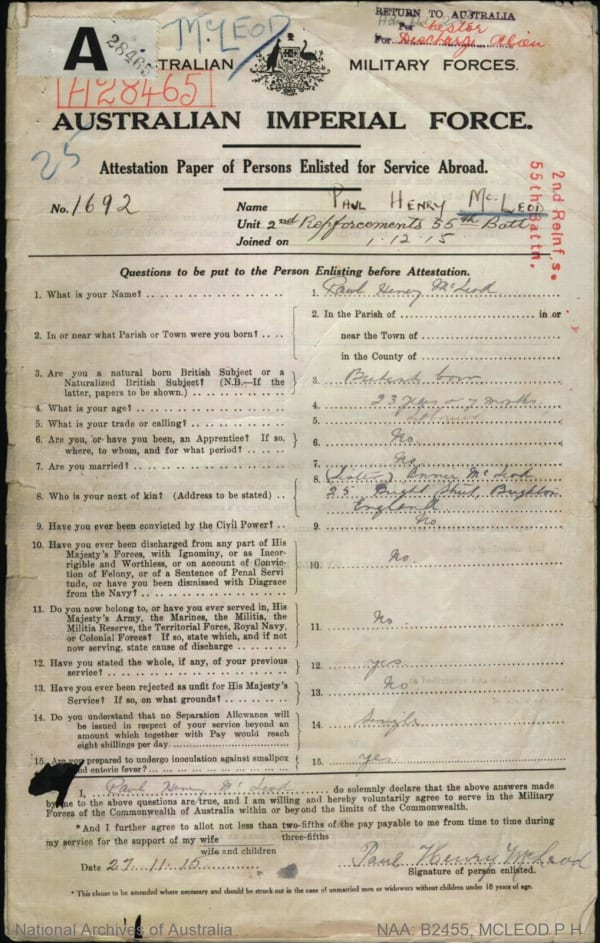 A
28465
McLEOD
RETURN TO AUSTRALIA
Per Nestor
For Discharge
AUSTRALIAN MILITARY FORCES.
H28465
AUSTRALIAN IMPERIAL FORCE.
25
Attestation Paper of Persons Enlisted for Service Abroad.
No. 1692
Name PAUL HENRY McLEOD
Unit 2nd Reinforcements 55th Battn
Joined on 1.12.15
2nd Reinf's.
55th Battn.
Questions to be put to the Person Enlisting before Attestation.
1. What is your Name? 1. Paul Henry McLeod
2. In or near what Parish or Town were you born? 2. In the Parish of in or
near the Town of
in the County of
3. Are you a natural born British Subject or a
Naturalized British Subject? (N.B.—If the
latter, papers to be shown.) 3. British born
4. What is your age? 4. 23 years 7 months
5. What is your trade or calling? 5. Labourer
6. Are you, or have you been, an Apprentice? If so,
where, to whom, and for what period? 6. No
7. Are you married? 7. No
8. Who is your next of kin? (Address to be stated) 8. (Sister) McLeod
25 Street, Brighton
England
9. Have you ever been convicted by the Civil Power? 9. No
10. Have you ever been discharged from any part of His
Majesty's Forces, with Ignominy, or as Incor-
rigible and Worthless, or on account of Convic-
tion of Felony, or of a Sentence of Penal Servi-
tude, or have you been dismissed with Disgrace
from the Navy? 10. No.
11. Do you now belong to, or have you ever served in, His
Majesty's Army, the Marines, the Militia, the
Militia Reserve, the Territorial Force, Royal Navy,
or Colonial Forces? If so, state which, and if not
now serving, state cause of discharge 11. No
12. Have you stated the whole, if any, of your previous
service? 12. yes
13. Have you ever been rejected as unfit for His Majesty's
Service? If so, on what grounds? 13. No
14. Do you understand that no Separation Allowance will
be issued in respect of your service beyond an
amount which together with Pay would reach
eight shillings per day. 14. Single
15. Are you prepared to undergo inoculation against smallpox
and enteric fever? 15. yes
I, Paul Henry McLeod do solemnly declare that the above answers made
by me to the above questions are true, and I am willing and hereby voluntarily agree to serve in the Military
Forces of the Commonwealth of Australia within or beyond the limits of the Commonwealth.
*And I further agree to allot not less than two-fifths of the pay payable to me from time to time during
three-fifths
my service for the support of my wife
wife and children
Date 27.11.15 Paul Henry McLeod
Signature of person enlisted.
* This clause to be amended where necessary and should be struck out in the case of unmarried men or widowers without children under 18 years of age.
National Archives of Australia NAA: B2455, MCLEOD P H